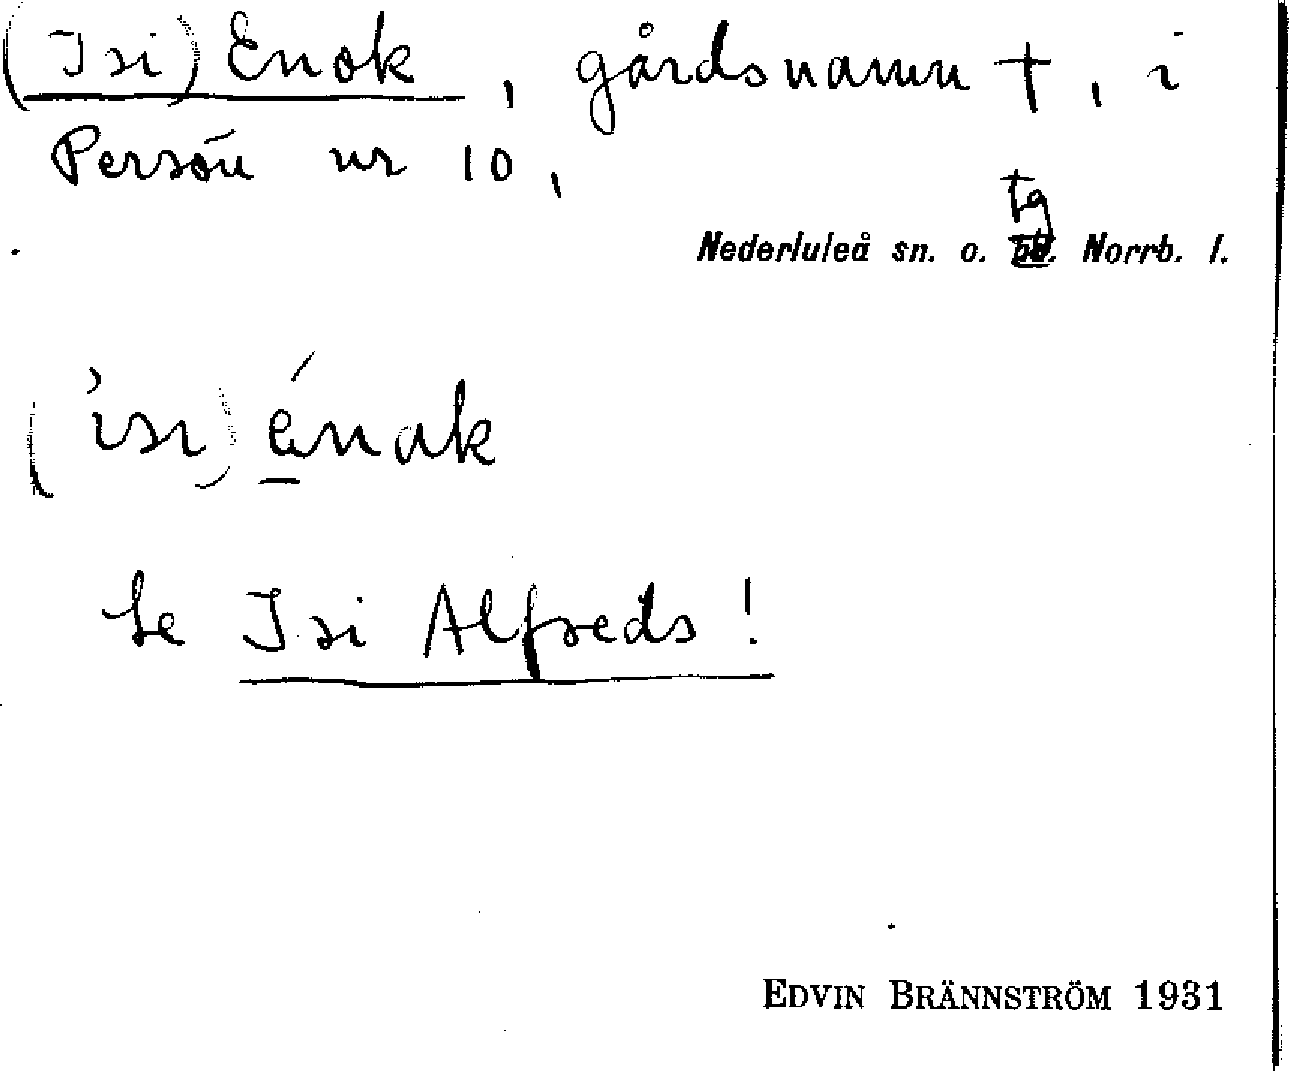 (Isi) Enok, gårdsnamn †, i
Persön nr 10,
tg
Nederluleå sn. o. Norrb. l.
(ìsı) énak
Se Isi Alfreds!
EDVIN BRÄNNSTRÖM 1931